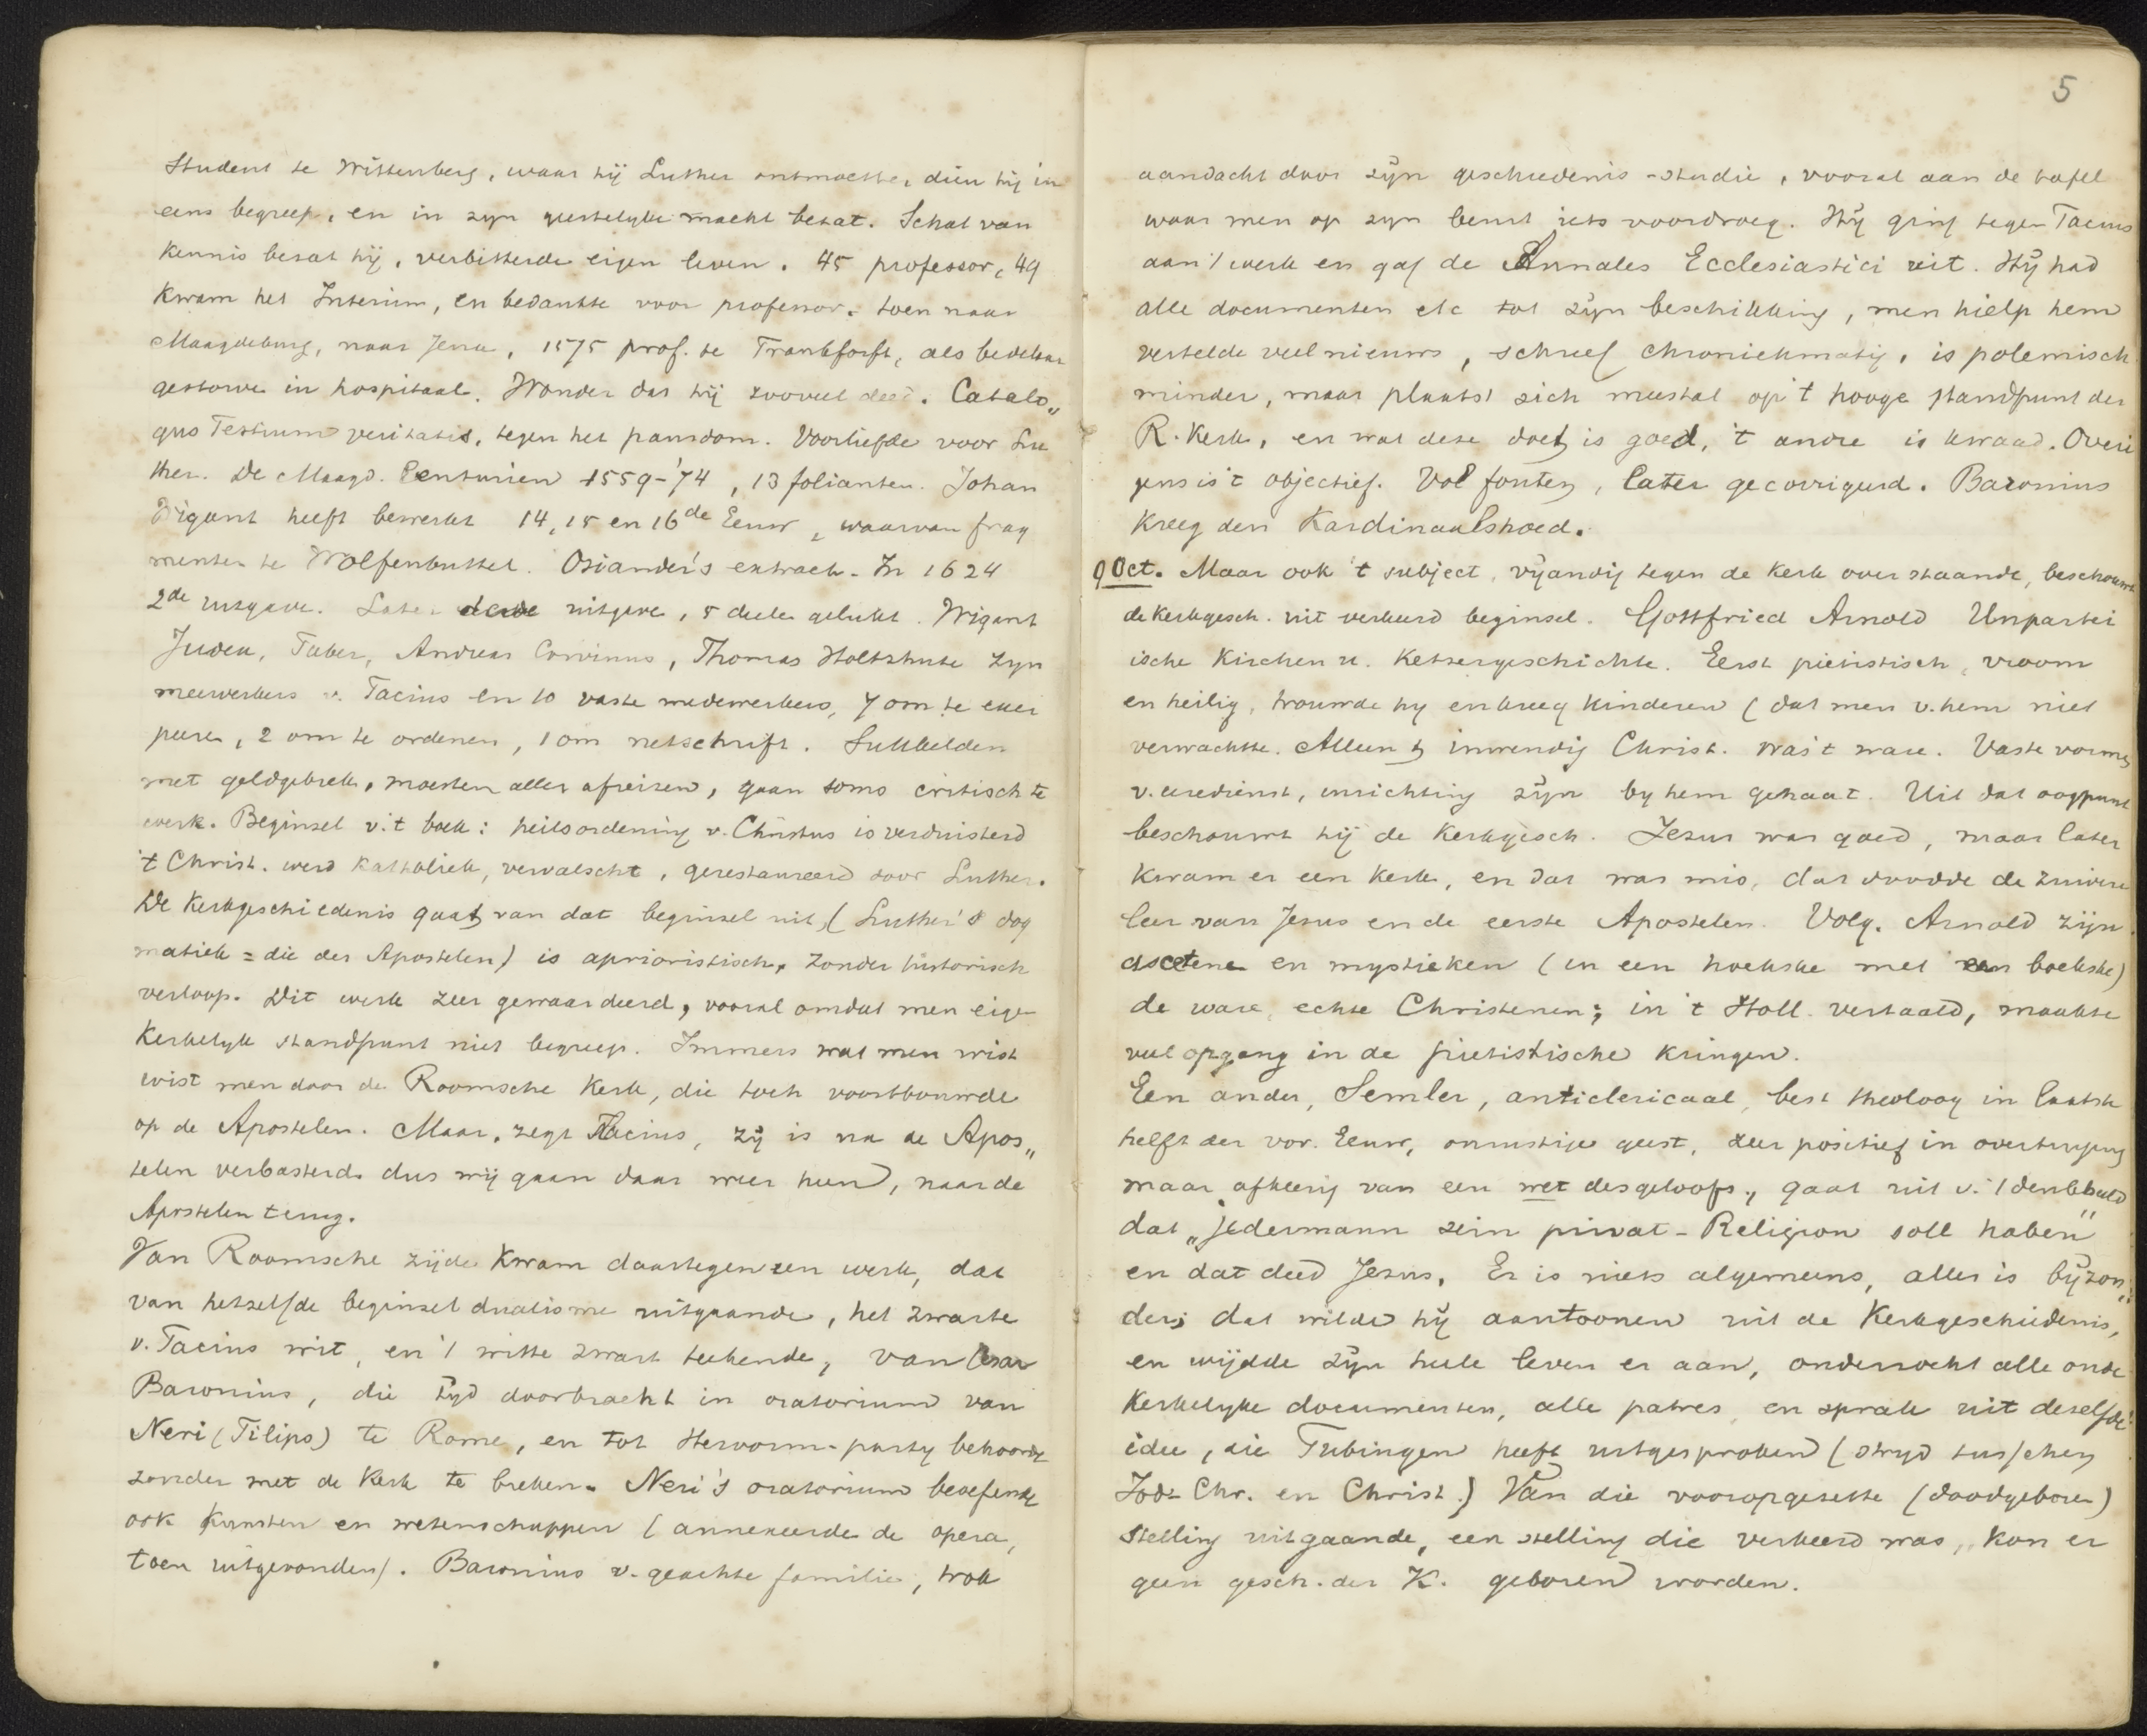 Student te Wittenberg, waar hij Luther ontmoette, dien hij in
eens begreep, en in zyn geestelyke macht bezat. Schat van
kennis bezat hij, verbitterde eigen leven. 45 professor, 49
kwam het Interim, en bedankte voor professor. toen naar
Maagdeburg, naar Jena, 1575 prof. te Frankfort, als bedelaar
gestorve in hospitaal. Wonder dat hij zooveel deed. Catalo„
gus Testium veritatis, tegen het pausdom. Voorliefde voor Lu
ther. De Maagd. Centurien 1559-'74, 13 folianten. Johan
Wigant heeft bewerkt 14, 15 en 16de Eeuw, waarvan frag
menten te Wolfenbuttel. Osiander's extract. In 1624
2de uitgave. Later derde uitgave, 5 deelen gelukt. Wigant
Judex, Faber, Andreas Corvinus, Thomas Holtzhute zyn
meewerkers v. Facius en 10 vaste medewerkers, 7 om te exer
peeren, 2 om te ordenen, 1 om netschrift. Sukkelden
met geldgebrek, moesten alles afreizen, gaan soms critisch te
werk. Beginsel v. 't boek: heilsordening v. Christus is verduisterd
't Christ. werd katholiek, vervalscht, gerestaureerd door Luther.
De Kerkgeschiedenis gaat van dat beginsel uit, (Luther's dog
matiek = die der Apostelen) is aprioristisch, zonder historisch
verloop. Dit werk zeer gewaardeerd, vooral omdat men eigen
Kerkelyk standpunt niet begreep. Immers wat men wist
wist men door de Roomsche Kerk, die toch voortbouwde
op de Apostelen. Maar, zegt Flacius, zij is na de Apos„
telen verbasterd. dus wij gaan daar weer heen, naar de
Apostelen terug.
Van Roomsche zijde kwam daartegen een werk, dat
van hetzelfde beginsel dualisme uitgaande, het zwarte
v. Facius wit, en 't witte zwart teekende, van Cesar
Baronius, die tyd doorbracht in oratorium van
Neri (Filips) te Rome, en tot Hervorm-party behoorde
zonder met de Kerk te breken. Neri's oratorium beoefende
ook kunsten en wetenschappen (annexeerde de opera,
toen uitgevonden). Baronius v. geachte familie, trok
5
aandacht door zijn geschiedenis-studie, vooral aan de tafel
waar men op zyn beurt iets voordroeg. Hij ging tegen Facius
aan 't werk en gaf de Annales Ecclesiastici uit. Hij had
alle documenten etc tot zijn beschikking, men hielp hem
vertelde veel nieuws, schreef chroniekmatig, is polemisch
minder, maar plaatst zich meestal op 't hooge standpunt der
R. Kerk, en wat deze doet is goed, 't andre is kwaad. Overi
gens is 't objectief. Vol fouten, later gecorrigeerd. Baronius
kreeg den Kardinaalshoed.
9 Oct. Maar ook 't subject, vijandig tegen de Kerk over staande, beschouwt
de kerkgesch. uit verkeerd beginsel. Gottfried Arnold Unpartei
ische Kirchen u. Ketzergeschichte. Eerst pietistisch, vroom
en heilig, trouwde hy en kreeg kinderen (dat men v. hem niet
verwachtte. Alleen 't inwendig Christ. was 't ware. Vaste vormen
v. eredienst, inrichting zijn by hem gehaat. Uit dat oogpunt
beschouwt hij de Kerkgesch. Jezus was goed, maar later
kwam er een Kerk, en dat was mis, dat doodde de zuivere
leer van Jesus en de eerste Apostelen. Volg. Arnold zijn
ascetene en mystieken (in een hoekske met een boekske)
de ware, echte Christenen; in 't Holl. vertaald, maakte
veel opgang in de pietistische kringen.
Een ander, Semler, anticlericaal, best theoloog in laatste
helft der vor. Eeuw, onrustige geest, zeer positief in overtuiging
maar afkeerig van een wet des geloofs, gaat uit v. 't denkbeeld
dat „jedermann sein privat-Religion soll haben”
en dat deed Jezus. Er is niets algemeens, alles is bijzon„
der; dat wilde hij aantoonen uit de Kerkgeschiedenis,
en wijdde zijn heele leven er aan, onderzocht alle oude
kerkelyke documenten, alle patres, en sprak uit dezelfde
idee, die Tubingen heeft uitgesproken (stryd tusschen
Jod-Chr. en Christ.) Van die vooropgezette (doodgeboren)
stelling uitgaande, een stelling die verkeerd was, kon er
geen gesch. der K. geboren worden.